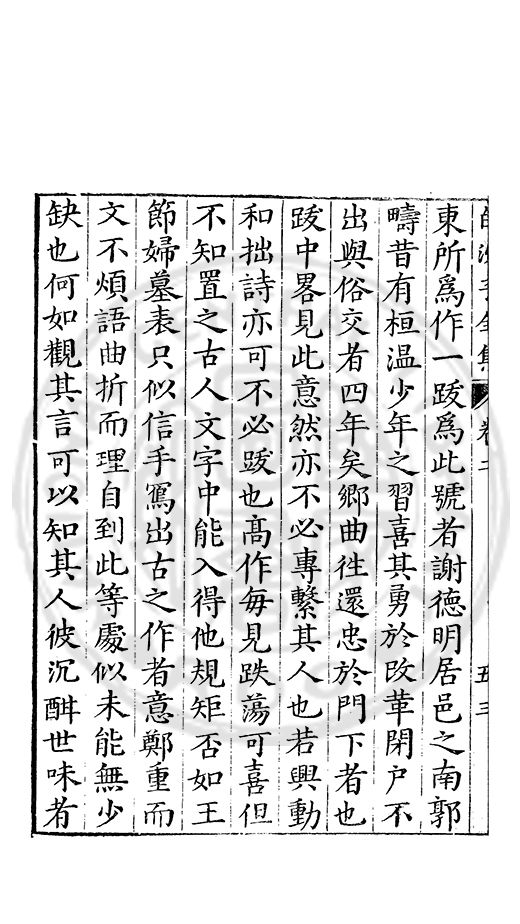 白沙子全集 卷二 五三
東所爲作一跋爲此號者謝德明居邑之南郭
疇昔有桓温少年之習喜其勇於改革閉户不
出與俗交者四年矣鄉曲徃還忠於門下者也
跋中畧見此意然亦不必專繫其人也若興動
和拙詩亦可不必跋也髙作每見跌蕩可喜但
不知置之古人文字中能入得他規矩否如王
節婦墓表只似信手寫出古之作者意鄭重而
文不煩語曲折而理自到此等處似未能無少
缺也何如觀其言可以知其人彼沉酣世味者